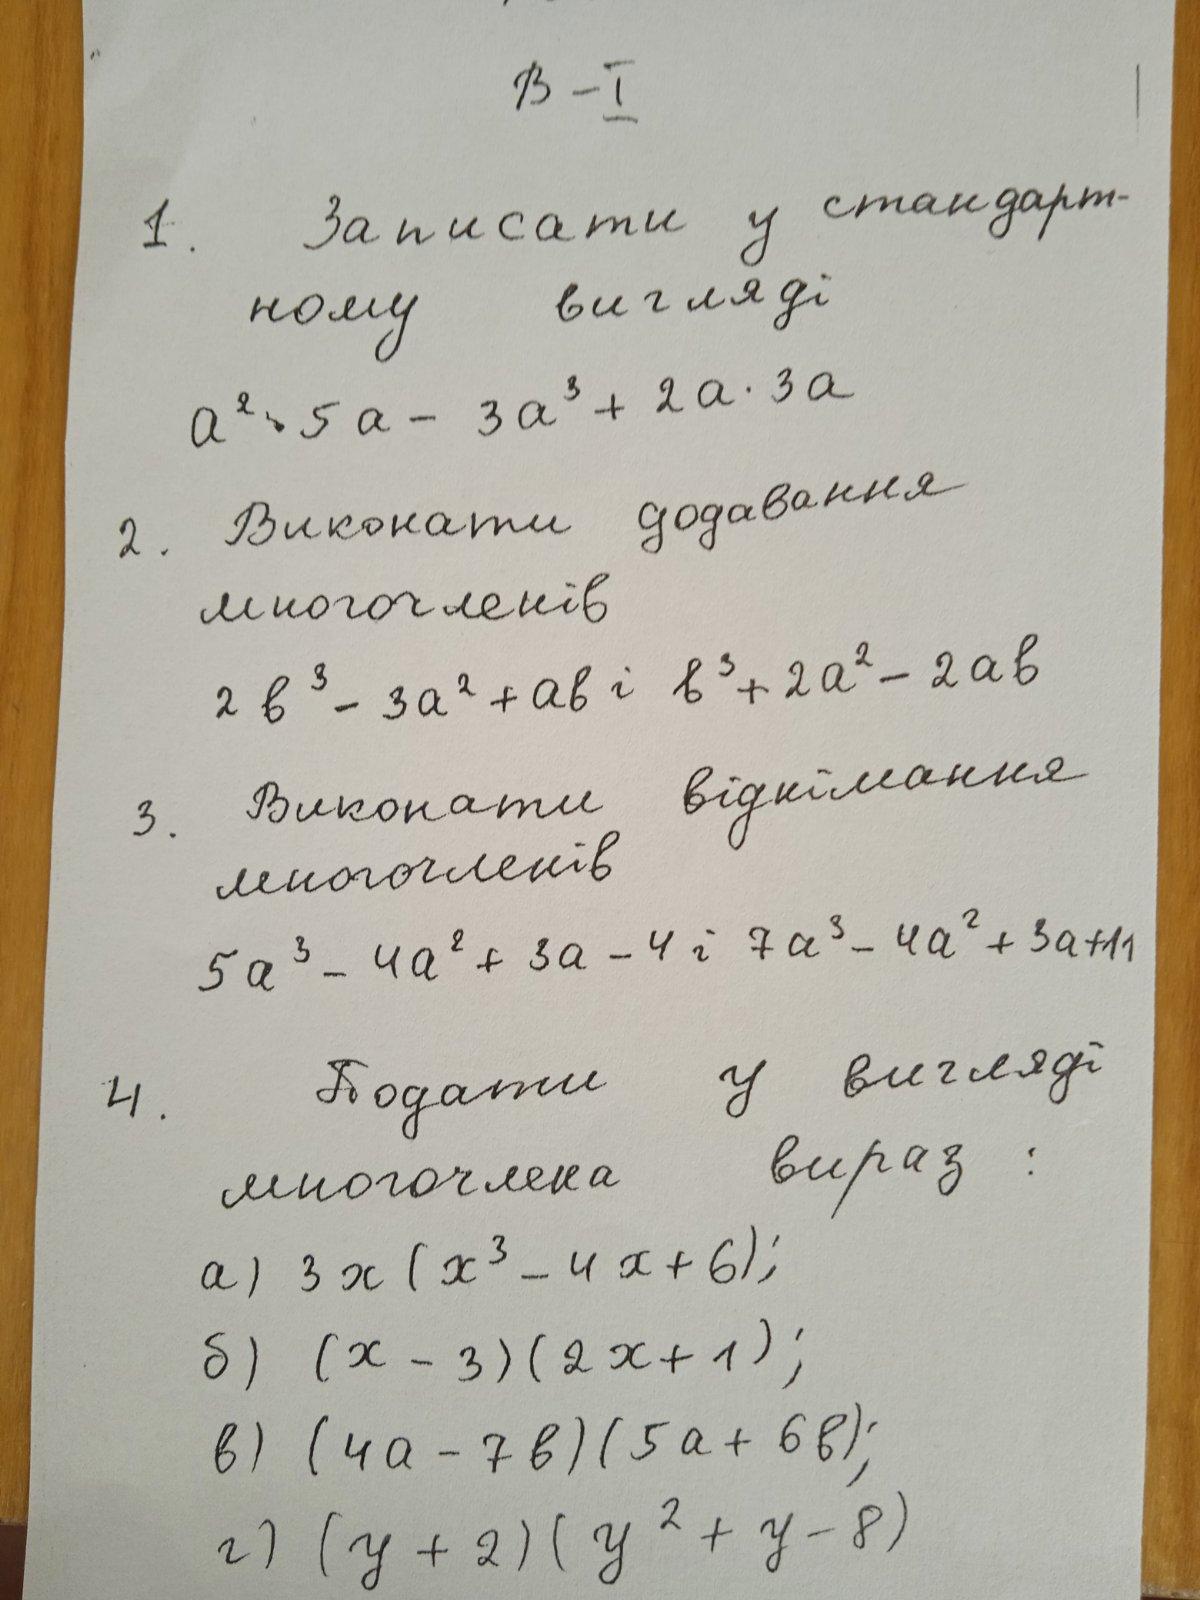 В - I
1. Записати у стандарт-
ному вигляді
a² · 5a - 3a³ + 2a · 3a
2. Виконати додавання
многочленів
2в³ - 3a² + aв і в³ + 2a² - 2aв
3. Виконати віднімання
многочленів
5a³ - 4a² + 3a - 4 і 7a³ - 4a² + 3a + 11
4. Подати у вигляді
многочлена вираз :
а) 3x (x³ - 4x + 6);
б) (x - 3)(2x + 1);
в) (4a - 7в)(5a + 6в);
г) (y + 2)(y² + y - 8)